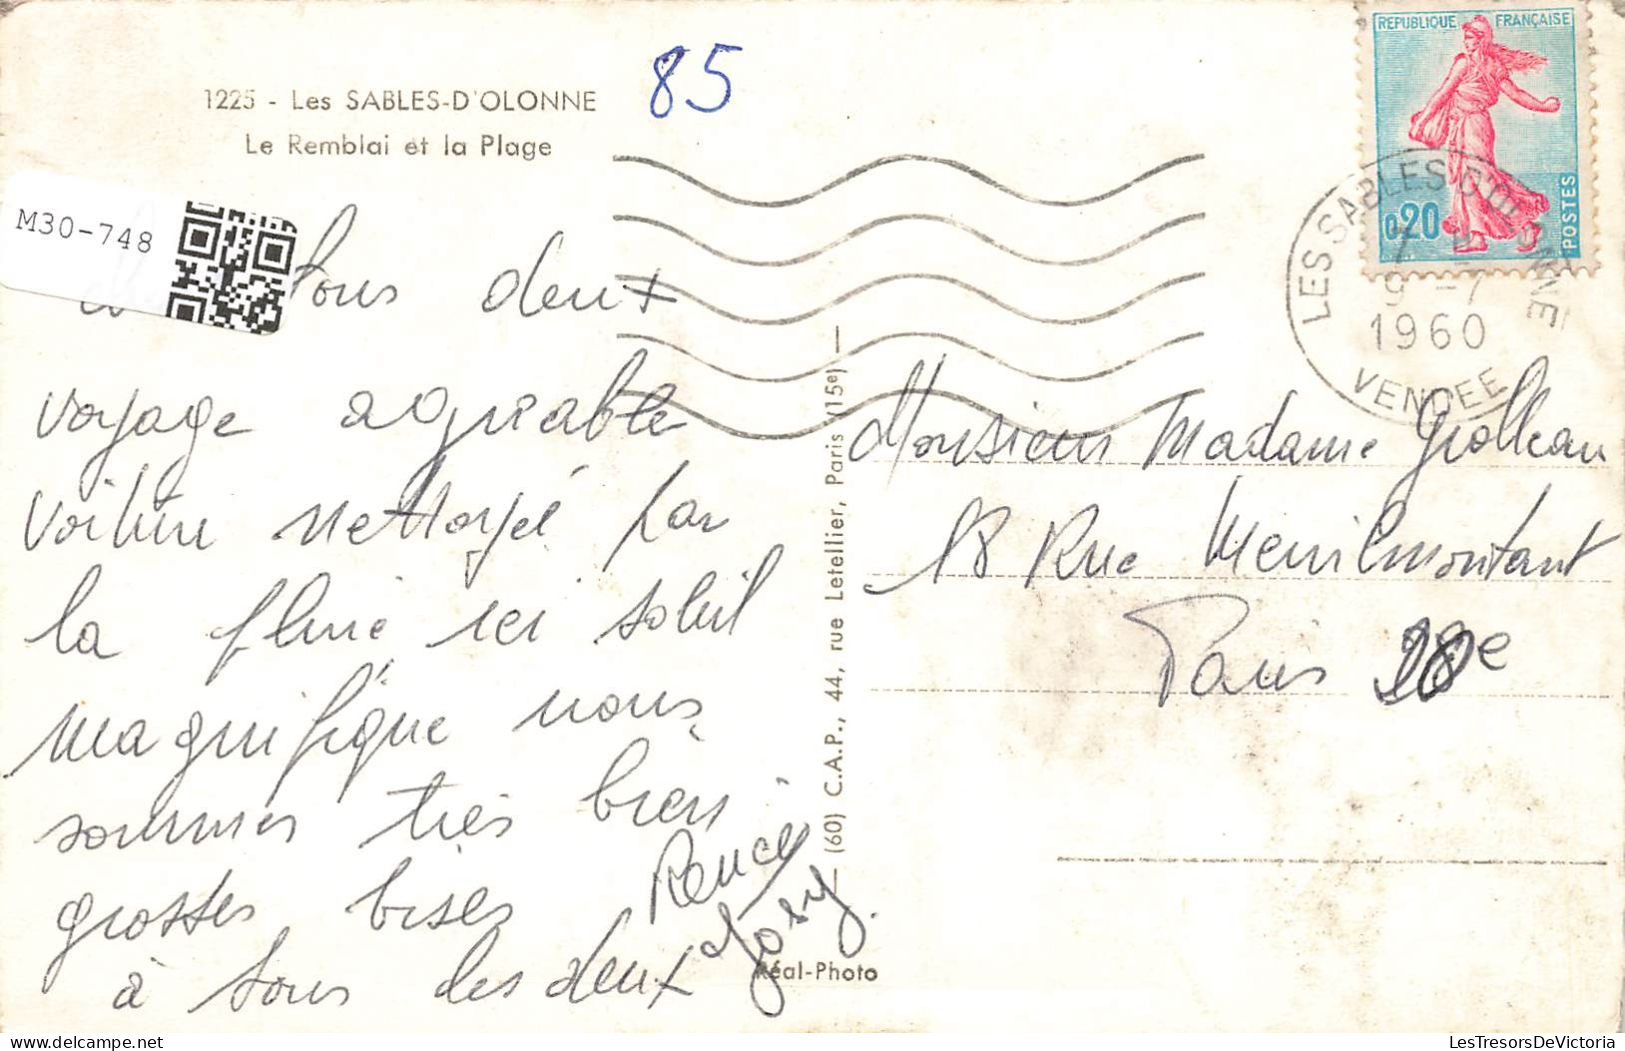 1225 - Les SABLES-D'OLONNE
Le Remblai et la Plage
85
M30-748
REPUBLIQUE FRANÇAISE
0,20
POSTES
LES SABLES D'OLONNE
9 -7
1960
VENDEE
tous deux
voyage agréable
voiture nettoyé par
la pluie ici soleil
magnifique nous
sommes très bien
grosses bises
à tous les deux
Josy
(60) C.A.P., 44, rue Letellier, Paris (15e)
Réal-Photo
Monsieur Madame Grolleau
18 Rue Menilmontant
Paris 20e
LesTresorsDeVictoria